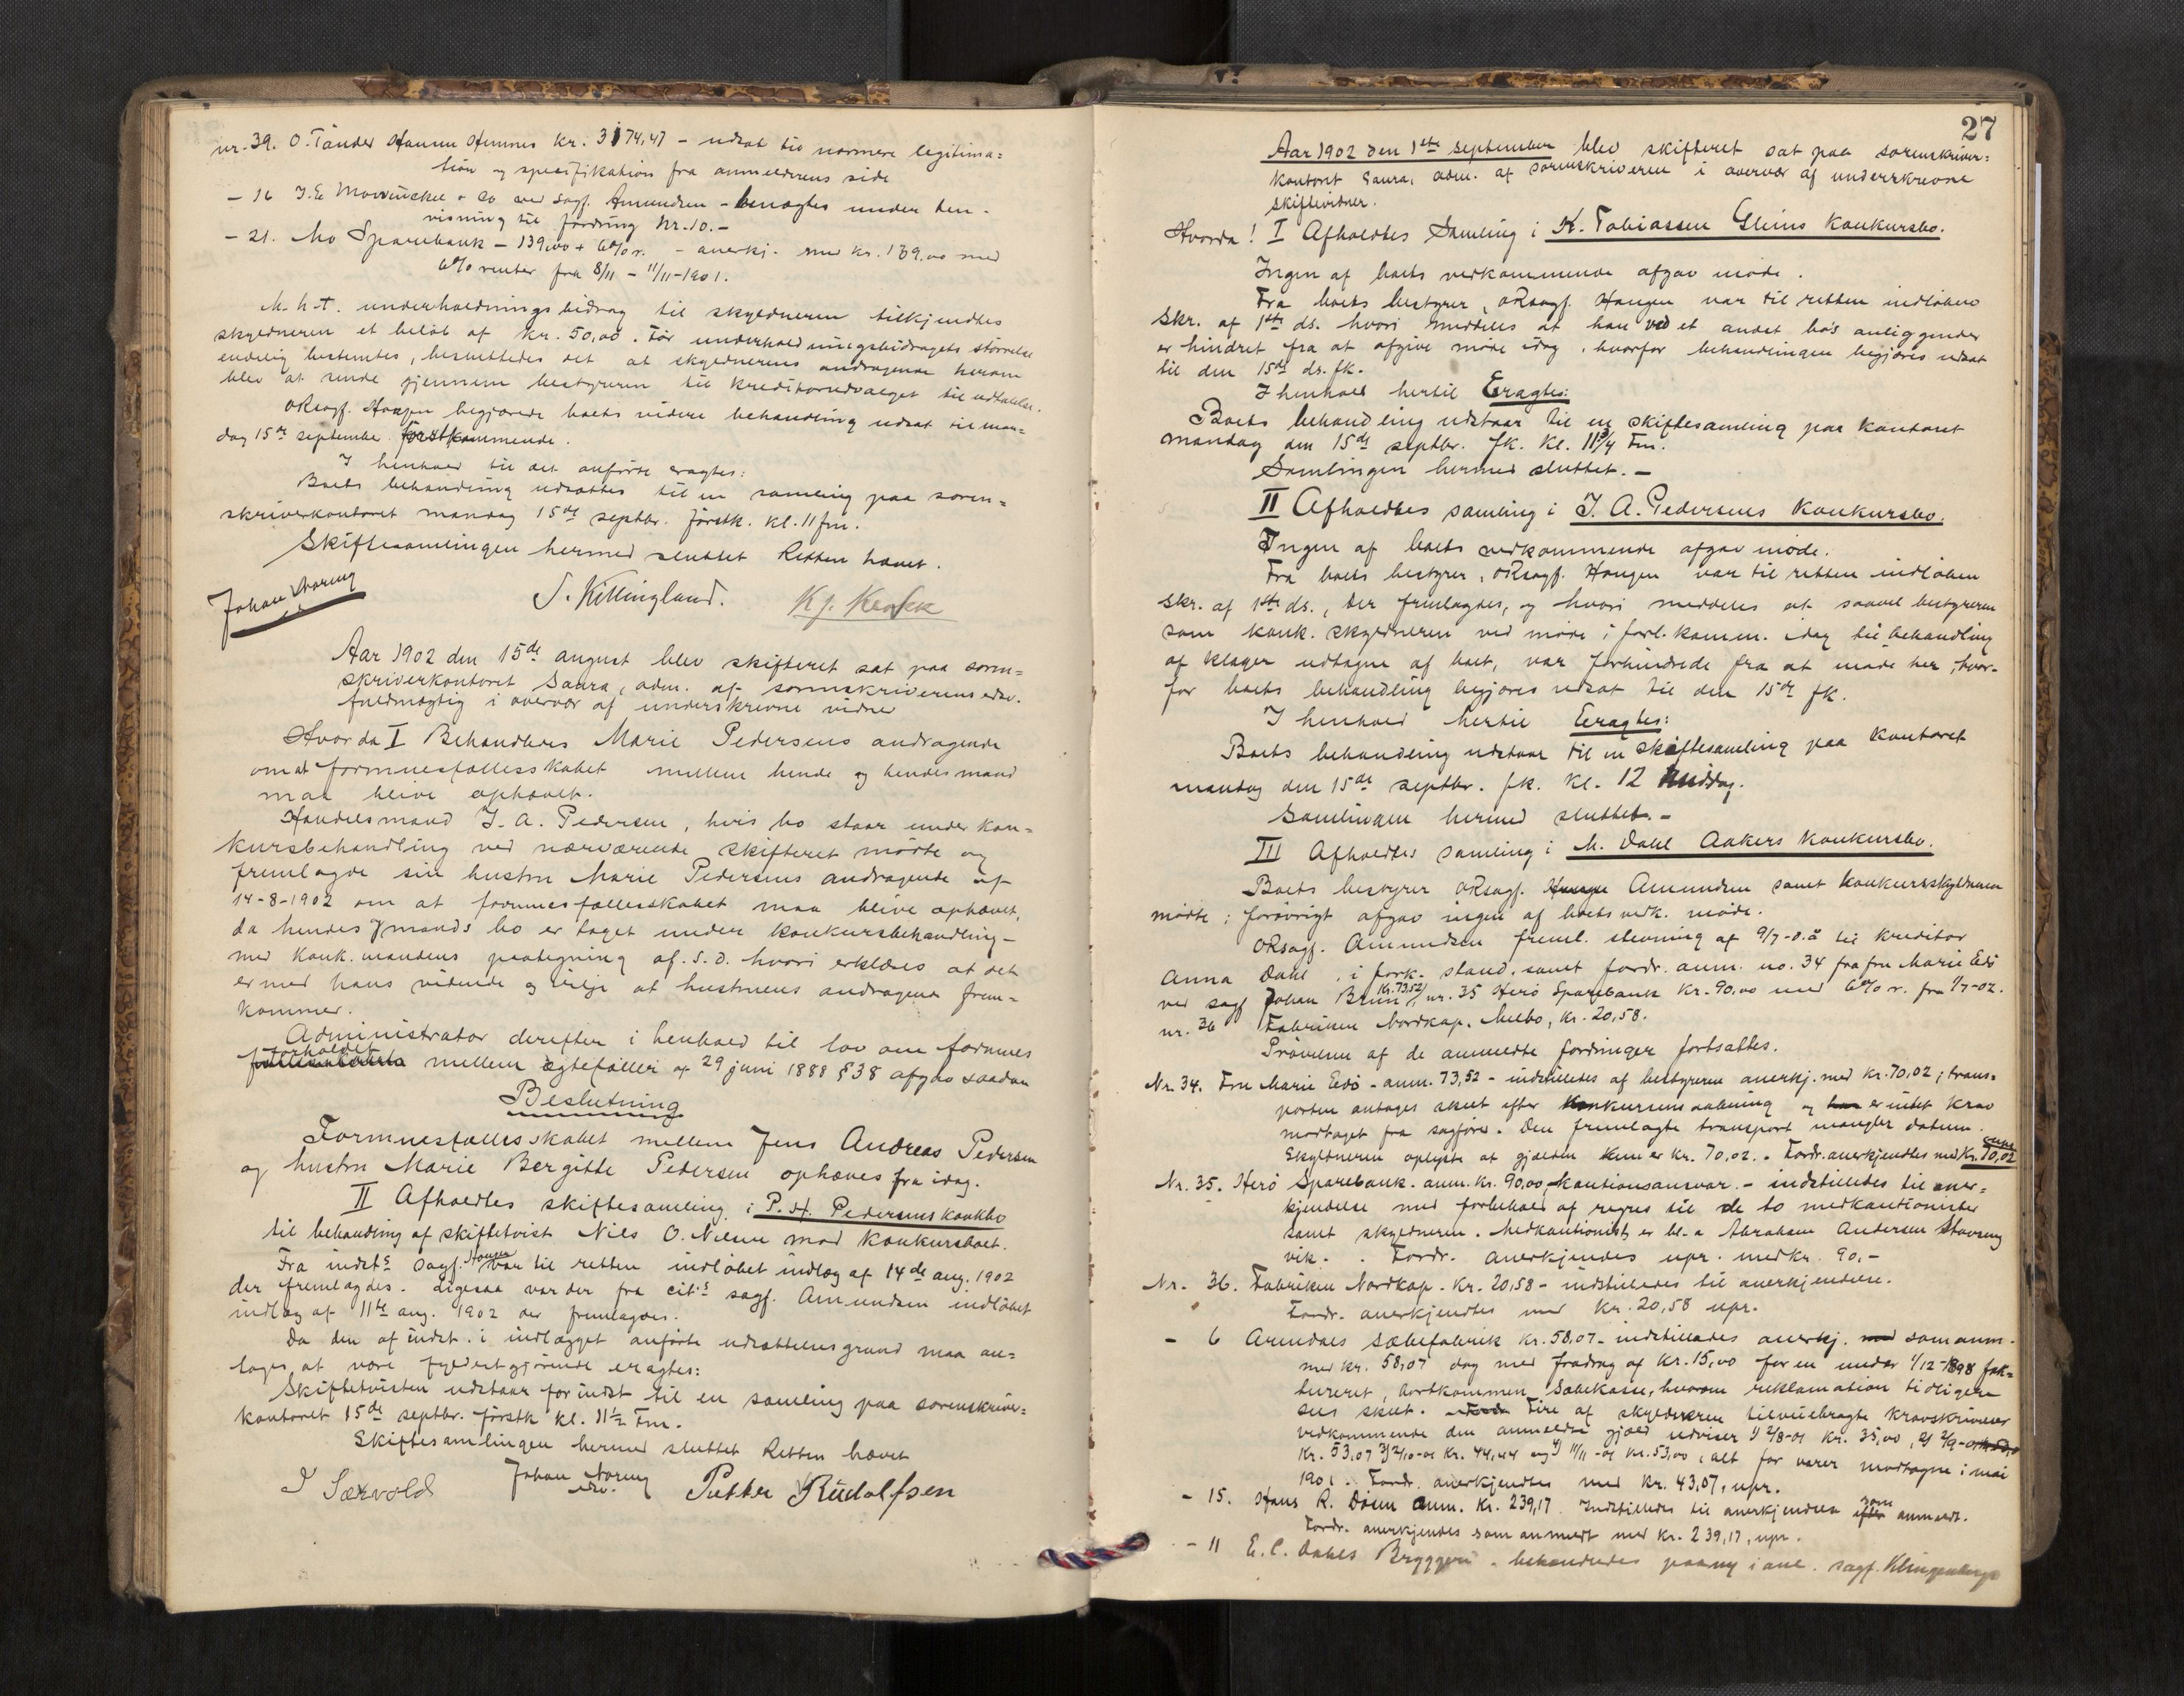 nr. 39. O. Tånder Havnn Hemnes kr. 3174,47 – udsat til nærmere legitima=
tion og specifikation fra anmelderens side
– 16 J. E. Mowinckel & Co ved sagf. Amundsen – benægtes under hen-
visning til fordring Nr. 10. –
– 21. Mo Sparebank – 139,00 + 6% r. – anerkj. med kr. 139,00 med
6% renter fra 8/11 – 11/11-1901.
M. h. t. underholdningsbidrag til skyldneren tilkjendtes
skyldneren et beløb af kr. 50,00. Før underholdningsbidragets størrelse
endelig bestemtes, besluttedes det at skyldnerens andragende herom
blev at sende gjennem bestyreren til kreditorudvalget til udtalelse.
ORsagf. Haugen begjærede boets videre behandling udsat til man=
dag 15de september førstkommende.
I henhold til det anførte eragtes:
Boets behandling udsættes til en samling paa soren=
skriverkontoret mandag 15de septbr. førstk. kl. 11 fm.
Skiftesamlingen hermed sluttet Retten hævet.
Johan Noreng S. Killingland. Kj.
Aar 1902 den 15de august blev skifteret sat paa soren=
skriverkontoret Saura, adm. af sorenskriverens edsv.
fuldmægtig i overvær af underskrevne vidner
Hvorda I Behandledes Marie Pedersens andragende
om at formuesfællesskabet mellem hende og hendes mand
maa blive ophævet.
Handelsmand J. A. Pedersen, hvis bo staar under kon=
kursbehandling ved nærværende skifteret mødte og
fremlagde sin hustru Marie Pedersens andragende af
14-8-1902 om at formuesfællesskabet maa blive ophævet,
da hendes mands bo er taget under konkursbehandling –
med konk. mandens paategning af s. d. hvori erklæres at det
er med hans vidende og vilje at hustruens andragende frem=
kommer.
Administrator derefter i henhold til lov om formues
forholdet
mellem egtefæller af 29 juni 1888 § 38 afgav saadan
Beslutning
Formuesfællesskabet mellem Jens Andreas Pedersen
og hustru Marie Bergitte Pedersen ophæves fra idag.
II Afholdtes skiftesamling i P. H. Pedersens konkbo
til behandling af skiftetvist Nils O. Nilsen mod konkursboet.
Fra indst.s sagf. Haugen var til retten indløbet indlæg af 14de aug. 1902
der fremlagdes. Ligesaa var der fra cit.s sagf. Amundsen indløbet
indlæg af 11te aug. 1902 der fremlagdes.
Da den af indst. i indlægget anførte udsættelsesgrund maa an=
tages at være fyldestgjørende eragtes:
Skiftetvisten udstaar for indst til en samling paa sorenskriver=
kontoret 15de septbr. førstk kl. 11½ Fm.
Skiftesamlingen hermed sluttet Retten hævet
J Særvold Johan Noreng edsv. Petter Rudolfsen
27
Aar 1902 den 1ste september blev skifteret sat paa sorenskriver=
kontoret Saura, adm. af sorenskriveren i overvær af underskrevne
skiftevidner.
Hvorda! I Afholdtes Samling i K. Tobiassen Gleins konkursbo.
Ingen af boets vedkommende afgav møde.
Fra boets bestyrer, ORsagf. Haugen var til retten indløben
Skr. af 1ste ds. hvori meddeles at han ved et andet bo's anliggender
er hindret fra at afgive møde idag, hvorfor behandlingen begjæres udsat
til den 15de ds. fk.
I henhold hertil Eragtes:
Boets behandling udstaar til en skiftesamling paa kontoret
mandag den 15de septbr. fk. Kl. 11¾ Fm.
Samlingen hermed sluttet. –
II Afholdtes samling i J. A. Pedersens konkursbo.
Ingen af boets vedkommende afgav møde.
Fra boets bestyrer, ORsagf. Haugen var til retten indløben
skr. af 1ste ds., der fremlagdes, og hvori meddeles at saavel bestyreren
som konk. skyldneren ved møde i forl. komm. idag til behandling
af klager udtagne af boet, var forhindrede fra at møde her, hvor-
for boets behandling begjæres udsat til den 15de fk.
I henhold hertil Eragtes:
Boets behandling udstaar til en skiftesamling paa kontoret
mandag den 15de septbr. fk. kl. 12 Middag.
Samlingen hermed sluttet. –
III Afholdtes samling i M. Dahl Aakers konkursbo.
Boets bestyrer ORsagf. Haugen Amundsen samt konkursskyldneren
mødte; forøvrigt afgav ingen af boets vedk. møde.
ORsagf. Amundsen freml. stevning af 9/7 d. å til kreditor
Anna Dahl, i fork. stand. samt fordr. anm. no. 34 fra fru Marie Edø
ved sagf Johan Bruun (kr. 73,52), nr. 35 Herø Sparebank kr. 90,00 med 6% r. fra 1/7-02.
nr. 36 Fabriken Nordkap. Melbo, kr. 20,58.
Prøvelsen af de anmeldte fordringer fortsattes.
Nr. 34. Fru Marie Edø – anm. 73,52 – indstilledes af bestyreren anerkj. med kr. 70,02; trans=
porten antages skeet efter konkursens aabning og er intet krav
modtaget fra sagfører. Den fremlagte transport mangler datum.
Skyldneren oplyste at gjælden kun er kr. 70,02. Fordr. anerkjendtes med kr. 70,02 upr.
Nr. 35. Herø Sparebank. anm. kr. 90,00, kautionsansvar. – indstilledes til aner=
kjendelse med forbehold af regres til de to medkautionister
samt skyldneren. Medkautionist er bl. a Abraham Andersen Stavseng
vik. Fordr. anerkjendes upr. med kr. 90,–
Nr. 36. Fabriken Nordkap. Kr. 20,58 – indstilledes til anerkjendelse.
Fordr. anerkjendtes med kr. 20,58 upr.
– 6 Arendals Sæbefabrik kr. 58,07 – indstilledes anerkj. med som anm.
med kr. 58,07 dog med fradrag af kr. 15,00 for en under 1/12-1898 fak=
tureret, bortkommen Sæbekasse, hvorom reklamation tidligere
sees skeet. Fire af skyldneren tilveiebragte kravskrivelser
vedkommende den anmeldte gjæld udviser 1) 2/8-01 kr. 35,00, 2) 2/9-01
Kr. 53,07 3) 2/10-01 Kr. 44,44 og 4) 11/11-01 kr. 53,00, alt for varer modtagne i mai
1901. Fordr. anerkjendtes med kr. 43,07, upr.
– 15. Hans R. Dønn anm. kr. 239,17. Indstilledes til anerkjendelse efter som anmeldt.
Fordr. anerkjendes som anmeldt med kr. 239,17, upr.
– 11 E. C. Dahls Bryggeri – behandledes paany i anl. sagf. Klingenbergs